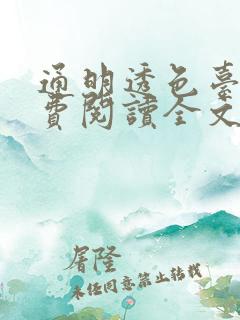 通明透色臺
費閱讀全文
屠隆
未经同意禁止转载